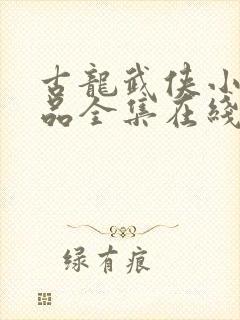 古龍武俠小
品全集在綫
绿有痕